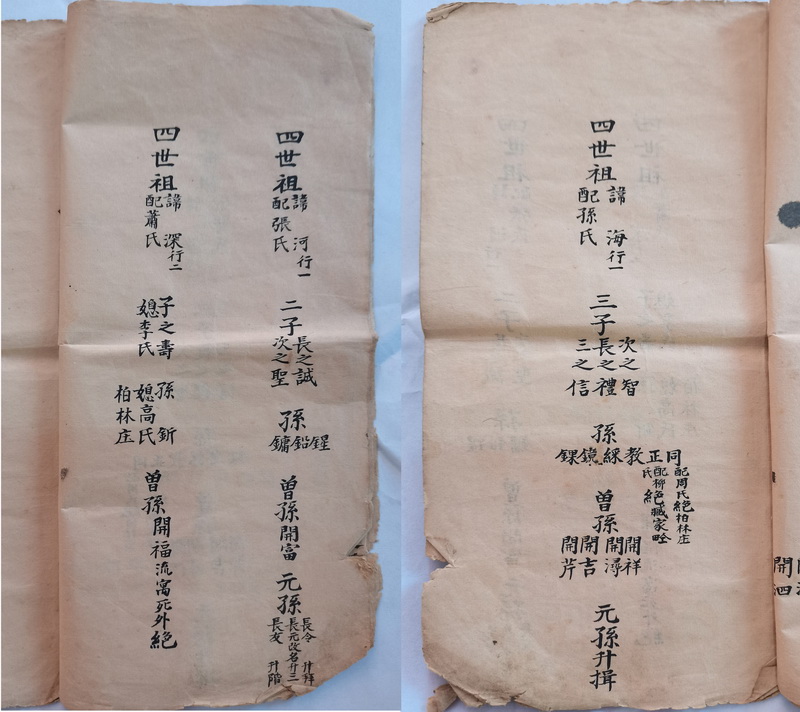 四世祖
諱 海行一
配孫氏
三子
次之智
長之禮
三之信
孫
同 正 教 綵 鏡 錁
配周氏絕柏林庄
配柳氏絕臧家疃
曾孫
開祥
開潯
開吉
開芹
元孫升揖
四世祖
諱 河行一
配張氏
二子
長之誠
次之聖
孫
鋥 鉛 鏞
曾孫開富
元孫
長令 升拜
長元改名升三
長友 升階
四世祖
諱 深行二
配蕭氏
子之壽
媳李氏
孫 釿
媳高氏
柏林庄
曾孫開福流寓死外絕
開泗